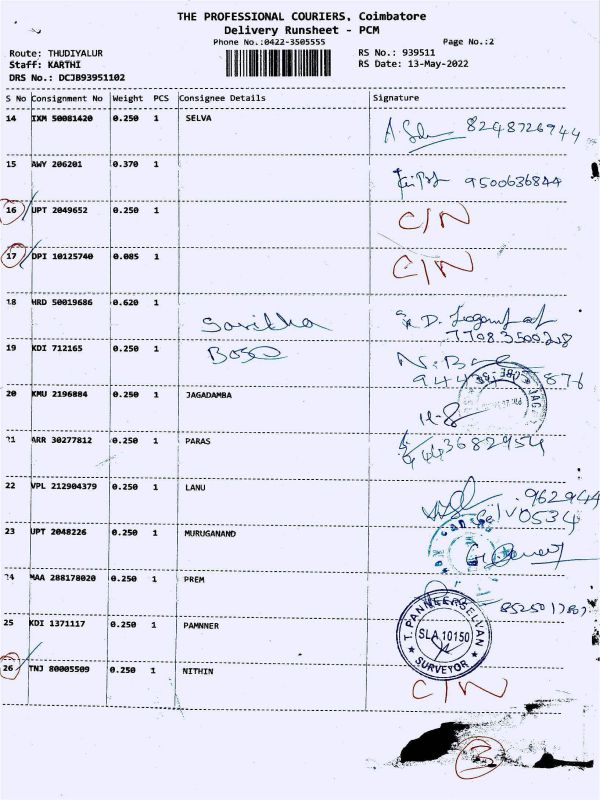 THE PROFESSIONAL COURIERS, Coimbatore
Delivery Runsheet - PCM
Phone No.:0422-3505555
Page No.:2
Route: THUDIYALUR
RS No.: 939511
Staff: KARTHI
RS Date: 13-May-2022
DRS No.: DCJB93951102
S No Consignment No Weight PCS Consignee Details Signature
14 IXM 50081420 0.250 1 SELVA
8248726944
15 AWY 206201 0.370 1
9500636844
16 UPT 2049652 0.250 1 C/N
17 DPI 10125740 0.085 1 C/N
18 HRD 50019686 0.620 1
Savitha
19 KDI 712165 0.250 1 BOSQ
20 KMU 2196884 0.250 1 JAGADAMBA
21 ARR 30277812 0.250 1 PARAS
22 VPL 212904379 0.250 1 LANU
962944
0534
23 UPT 2048226 0.250 1 MURUGANAND
24 MAA 288178020 0.250 1 PREM
25 KDI 1371117 0.250 1 PAMNNER
T. PANNEERSELVAN
SLA 10150
SURVEYOR
26 TNJ 80005509 0.250 1 NITHIN
C/N
3